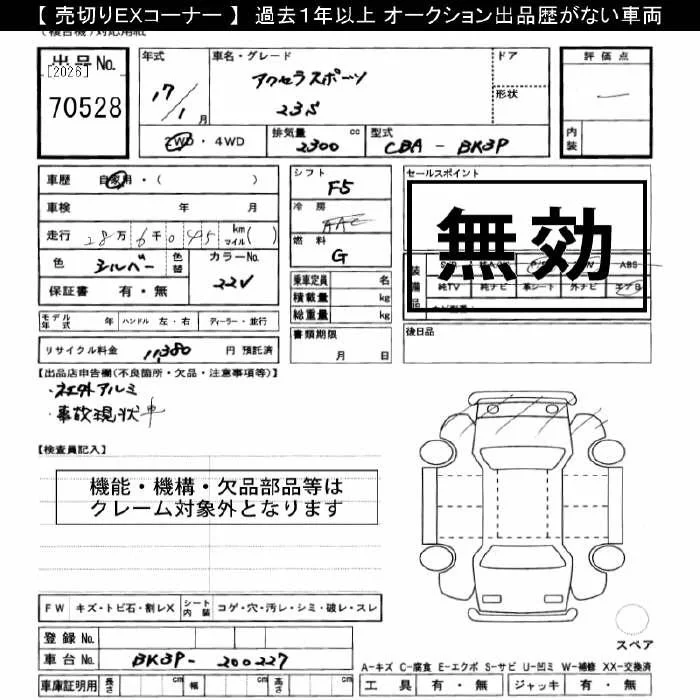 【 売切りEXコーナー 】 過去1年以上 オークション出品歴がない車両
出品No. [2026] 70528
年式 17/1月
車名・グレード アクセラスポーツ 23S
ドア
形状
評価点
内装
2WD・4WD
排気量 2300 cc
型式 CBA - BK3P
車歴 自家用・( )
車検 年 月
走行 28万6千045 km マイル( )
色 シルバー 色替
カラーNo. 22V
保証書 有・無
モデル年式 年 ハンドル 左・右 ディーラー・並行
リサイクル料金 11,380 円 預託済
シフト F5
冷房 AAC
燃料 G
乗車定員 名
積載量 kg
総重量 kg
書類期限 月 日
セールスポイント
無効
ABS
装備品 純TV 純ナビ 革シート 外ナビ エアB
後日品
【出品店申告欄(不良箇所・欠品・注意事項等)】
・社外アルミ
・事故現状車
【検査員記入】
機能・機構・欠品部品等は
クレーム対象外となります
FW キズ・トビ石・割レX シート内装 コゲ・穴・汚レ・シミ・破レ・スレ
登録No.
車台No. BK3P-200227
車庫証明用 長さ cm 幅 cm 高さ cm
スペア
A-キズ C-腐食 E-エクボ S-サビ U-凹ミ W-補修 XX-交換済
工具 有・無 ジャッキ 有・無